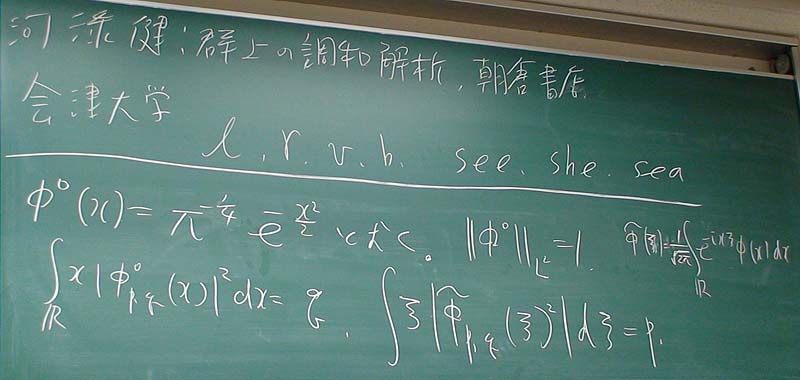 河添健:群上の調和解析,朝倉書店.
会津大学
l, r. v. b. see. she. sea
φ⁰(x)=π^{-1/4} e^{-x²/2} とおく。 ‖φ⁰‖_{L²}=1. φ̂(ξ)=1/√2π ∫_ℝ e^{-ixξ} φ(x)dx
∫_ℝ x|φ⁰_{p,q}(x)|²dx= q, ∫ξ|φ̂_{p,q}(ξ)²|dξ=p.